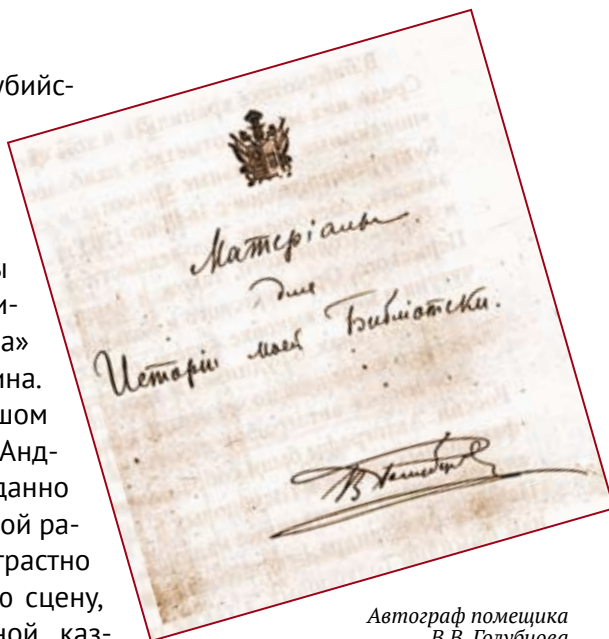 убийс-
ы
и-
а»
ина.
шом
Анд-
данно
ой ра-
трастно
ю сцену,
ной каз-
Матеріалы
для
Исторіи моей Библіотеки.
Автограф помещика
В.В. Голубцова